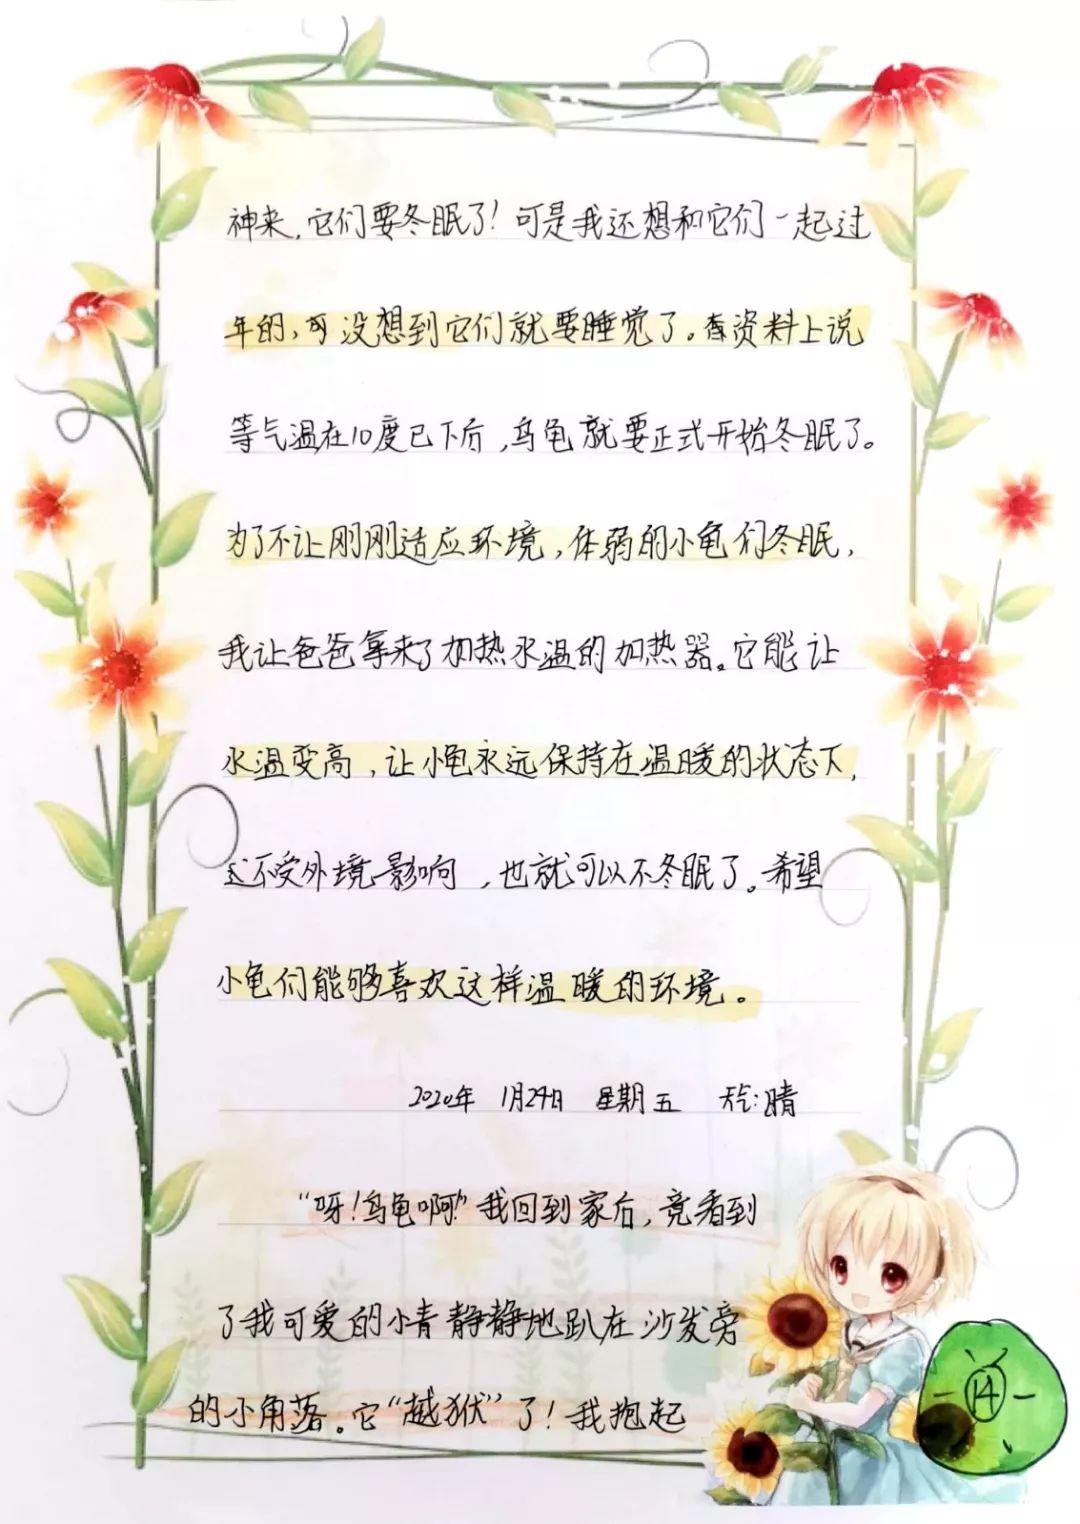 神来，它们要冬眠了！可是我还想和它们一起过
年的，可没想到它们就要睡觉了。查资料上说
等气温在10度已下后，乌龟就要正式开始冬眠了。
为了不让刚刚适应环境，体弱的小龟们冬眠，
我让爸爸拿来了加热水温的加热器。它能让
水温变高，让小龟永远保持在温暖的状态下，
不受外境影响，也就可以不冬眠了。希望
小龟们能够喜欢这样温暖的环境。
2020年 1月24日 星期五 天气：晴
“呀！乌龟啊！”我回到家后，竟看到
了我可爱的小青静静地趴在沙发旁
的小角落。它“越狱”了！我抱起
14